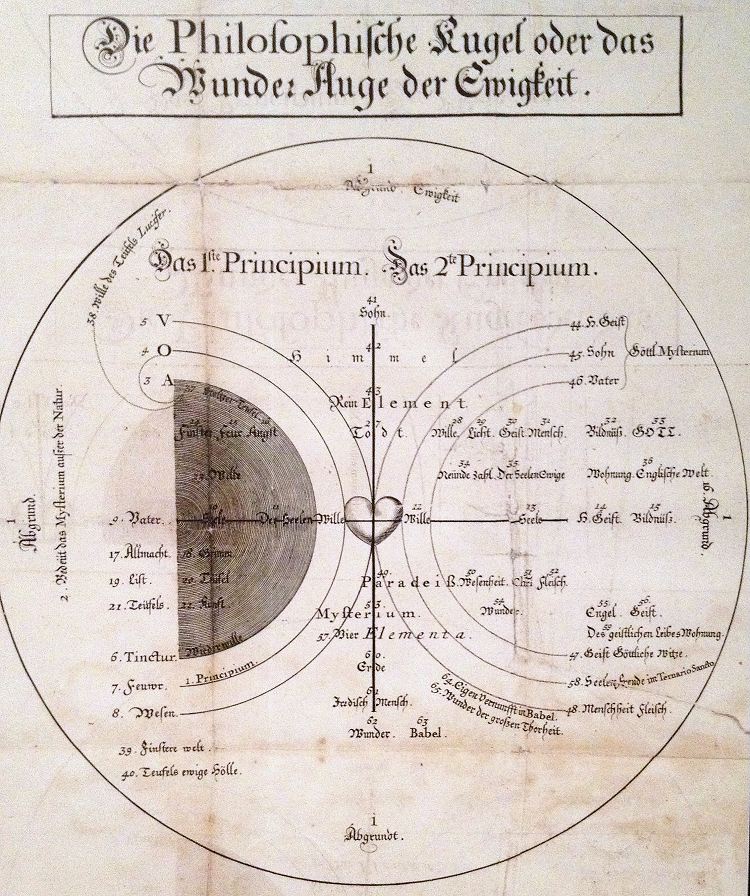 Die Philosophische Kugel oder das
Wunder Auge der Ewigkeit.
1
Abgrund. Ewigkeit
38. Wille des Teufels Lucifer.
Das 1.ste Principium. Das 2te Principium.
41
Sohn.
5 V
44. H. Geist
4 O
42
H i m m e l
45. Sohn
Göttl. Mysterium
3 A
46. Vater
43
Rein Element.
27
Todt.
28 29 30 31 32 33
Wille. Licht. Geist. Mensch. Bildnüß. GOTT.
Finster Feur Angst
34 35 36
Neunde Zahl. Der Seelen Ewige Wohnung. Englische Welt.
Wille
1
Abgrund.
2. Bedeut das Mysterium außer der Natur.
9. Vater. Seele Der Seelen Wille
12 13 14 15
Wille Seele H. Geist. Bildnüß.
16. Abgrund.
1
17. Allmacht. 18. Grimm
49. 50 51 52
Paradeiß. Wesenheit. Chri Fleisch.
19. List. 20. Teufel
21. Teüfels. 22. Kunst.
53 54 55 56
Mysterium. Wunder. Engel. Geist.
57. Vier Elementa.
59
Des geistlichen Leibes Wohnung.
6. Tinctur. Wiederwille
60.
Erde
47. Geist Göttliche Witze.
7. Feuwr. 1. Principium.
58. Seelen Ende im Ternario Sancto
61
Irdisch Mensch.
64. Eigen Vernunfft in Babel.
65. Wunder der großen Thorheit.
8. Wesen.
48. Menschheit Fleisch.
62 63
Wunder. Babel.
39. Finstere welt.
40. Teufels ewige Hölle.
1
Abgrundt.